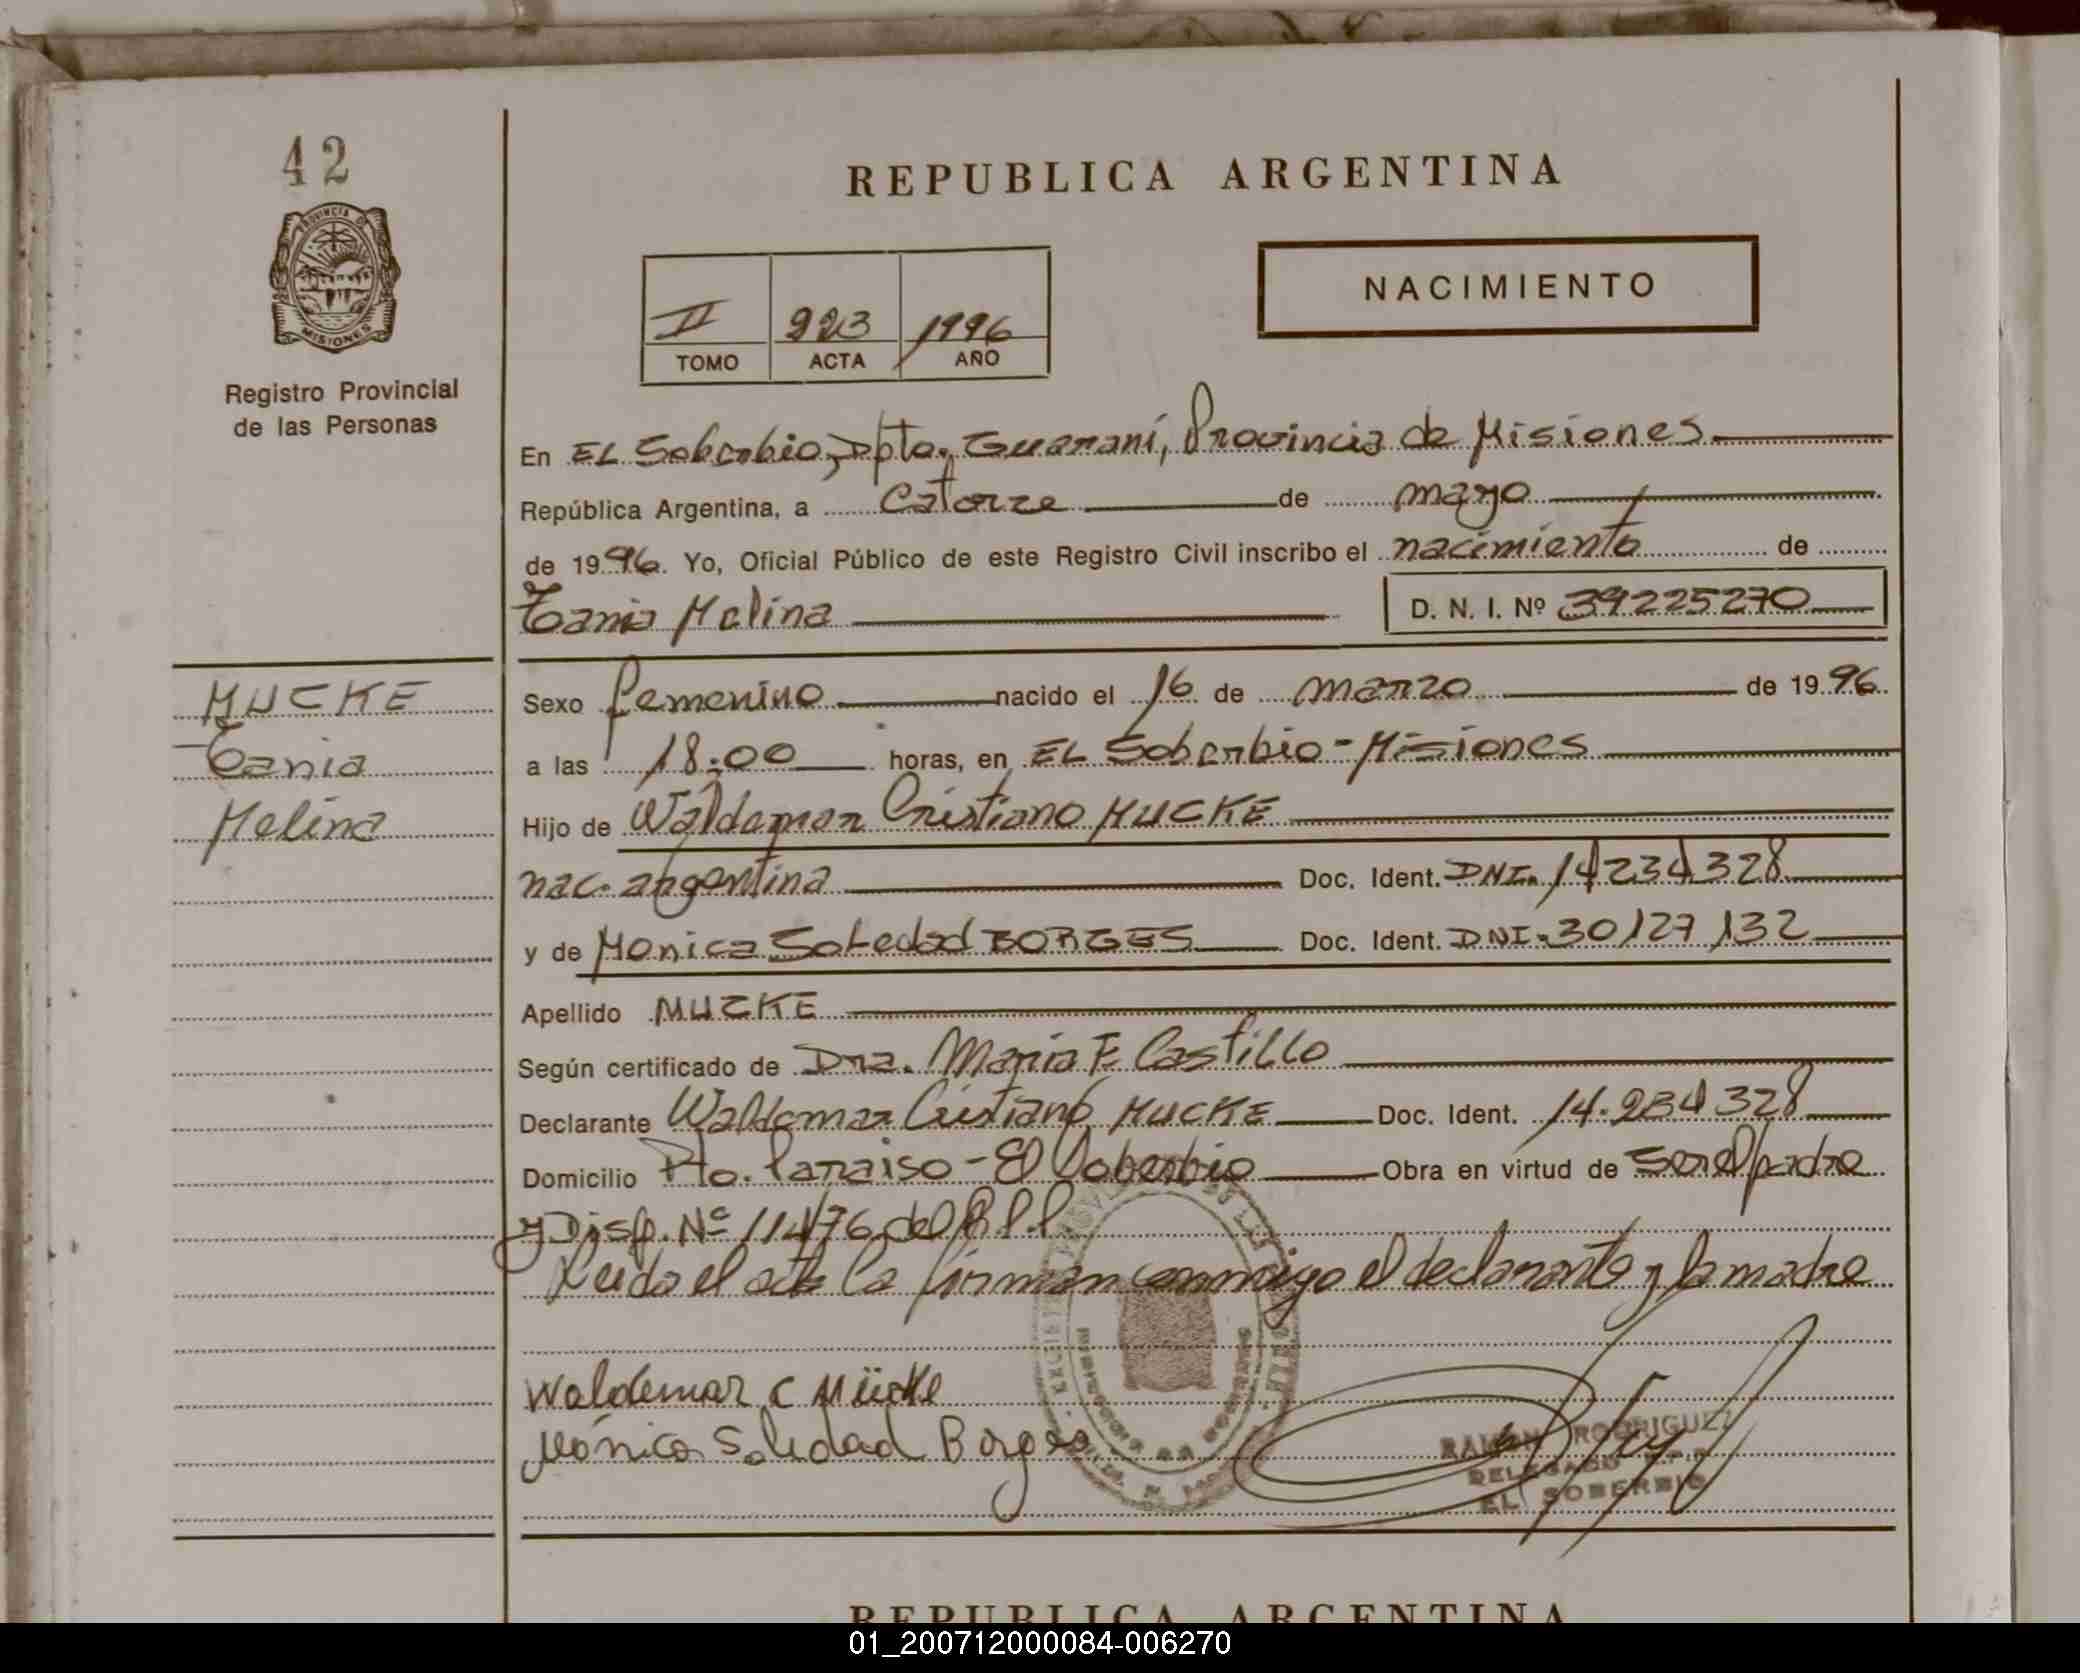 42
REPUBLICA ARGENTINA
PROVINCIA DE
MISIONES
NACIMIENTO
II 223 1996
TOMO ACTA AÑO
Registro Provincial
de las Personas
En EL Soberbio, Dpto. Guaraní, Provincia de Misiones
República Argentina, a Catorze de mayo
de 1996. Yo, Oficial Público de este Registro Civil inscribo el nacimiento de
Tania Melina D. N. I. Nº 39225270
MUCKE
Tania
Melina
Sexo femenino nacido el 16 de marzo de 1996.
a las 18:00 horas, en EL Soberbio - Misiones
Hijo de Waldemar Cristiano MUCKE
nac. argentina Doc. Ident. DNI. 14234328
y de Monica Soledad BORGES Doc. Ident. DNI. 30127132
Apellido MUCKE
Según certificado de Dra. Maria F. Castillo
Declarante Waldemar Cristiano MUCKE Doc. Ident. 14.234328
Domicilio Pto. Paraiso - El Soberbio Obra en virtud de ser el padre
y Disp. Nº 114/76 del R.P.P
Leida el acta la firman conmigo el declarante y la madre
Waldemar C Mücke
Mónica Soledad Borges
RAMON RODRIGUEZ
DELEGADO R.P.P
EL SOBERBIO
REPUBLICA ARGENTINA
01_200712000084-006270